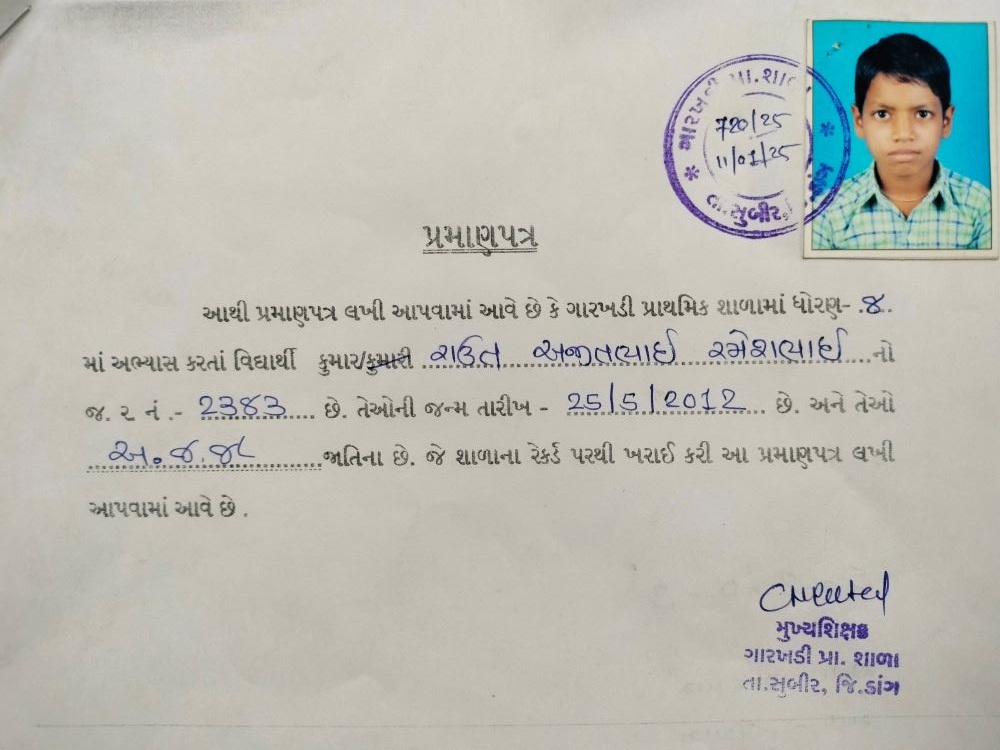 ગારખડી પ્રા.શાળા
720/25
11/01/25
તા.સુબીર,
પ્રમાણપત્ર
આથી પ્રમાણપત્ર લખી આપવામાં આવે છે કે ગારખડી પ્રાથમિક શાળામાં ધોરણ- .૪..
માં અભ્યાસ કરતાં વિદ્યાર્થી કુમાર/કુમારી રાઉત અજીતભાઈ રમેશભાઈ નો
જ. ર. નં .- 2383 છે. તેઓની જન્મ તારીખ - 25/5/2012 છે. અને તેઓ
અ.જ.જા જાતિના છે. જે શાળાના રેકર્ડ પરથી ખરાઈ કરી આ પ્રમાણપત્ર લખી
આપવામાં આવે છે .
મુખ્યશિક્ષક
ગારખડી પ્રા. શાળા
તા.સુબીર, જિ.ડાંગ